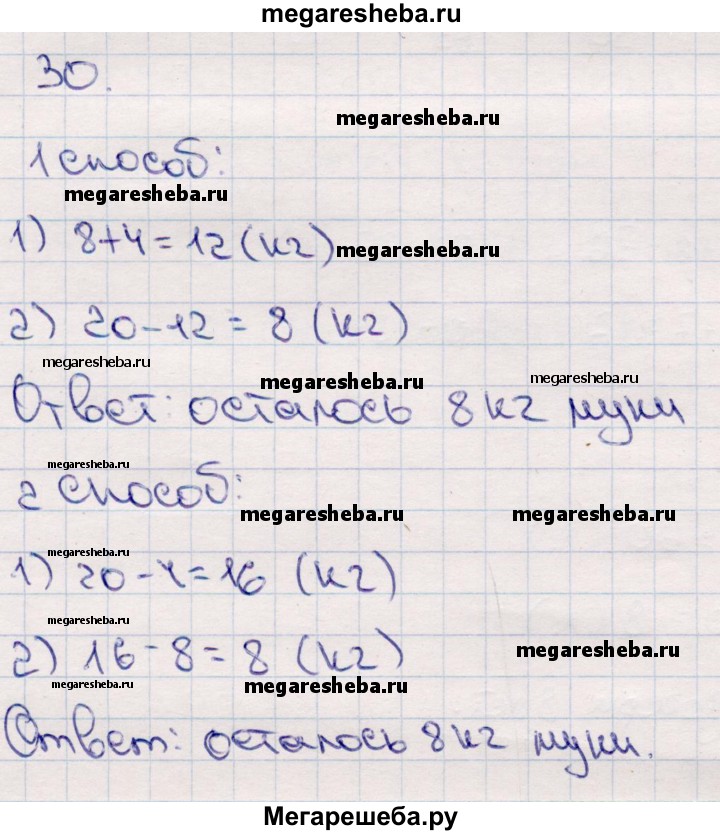 megaresheba.ru
30.
megaresheba.ru
1 способ:
megaresheba.ru
1) 8+4=12 (кг)
megaresheba.ru
2) 20-12=8 (кг)
megaresheba.ru
megaresheba.ru
megaresheba.ru
Ответ: осталось 8 кг муки
megaresheba.ru
2 способ:
megaresheba.ru
megaresheba.ru
megaresheba.ru
1) 20-4=16 (кг)
megaresheba.ru
2) 16-8=8 (кг)
megaresheba.ru
megaresheba.ru
megaresheba.ru
Ответ: осталось 8 кг муки.
Мегарешеба.ру